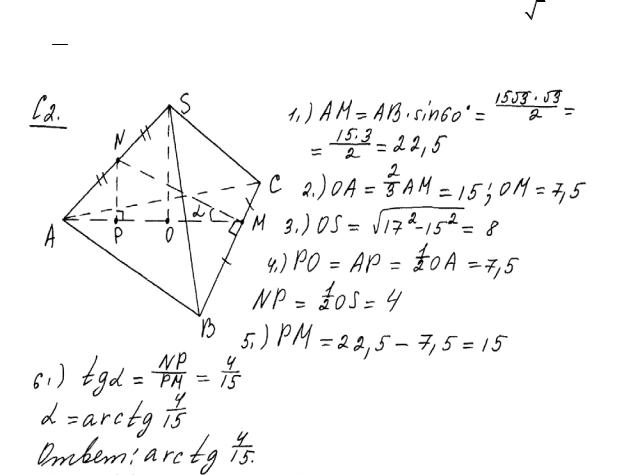 √
—
C2.
S
N
A
P
O
α
M
C
B
1.) AM = AB · sin60° = 15√3·√3/2 =
= 15·3/2 = 22,5
2.) OA = 2/3 AM = 15; OM = 7,5
3.) OS = √17²-15² = 8
4.) PO = AP = 1/2 OA = 7,5
NP = 1/2 OS = 4
5.) PM = 22,5 - 7,5 = 15
6.) tgα = NP/PM = 4/15
α = arctg 4/15
Ответ: arctg 4/15.